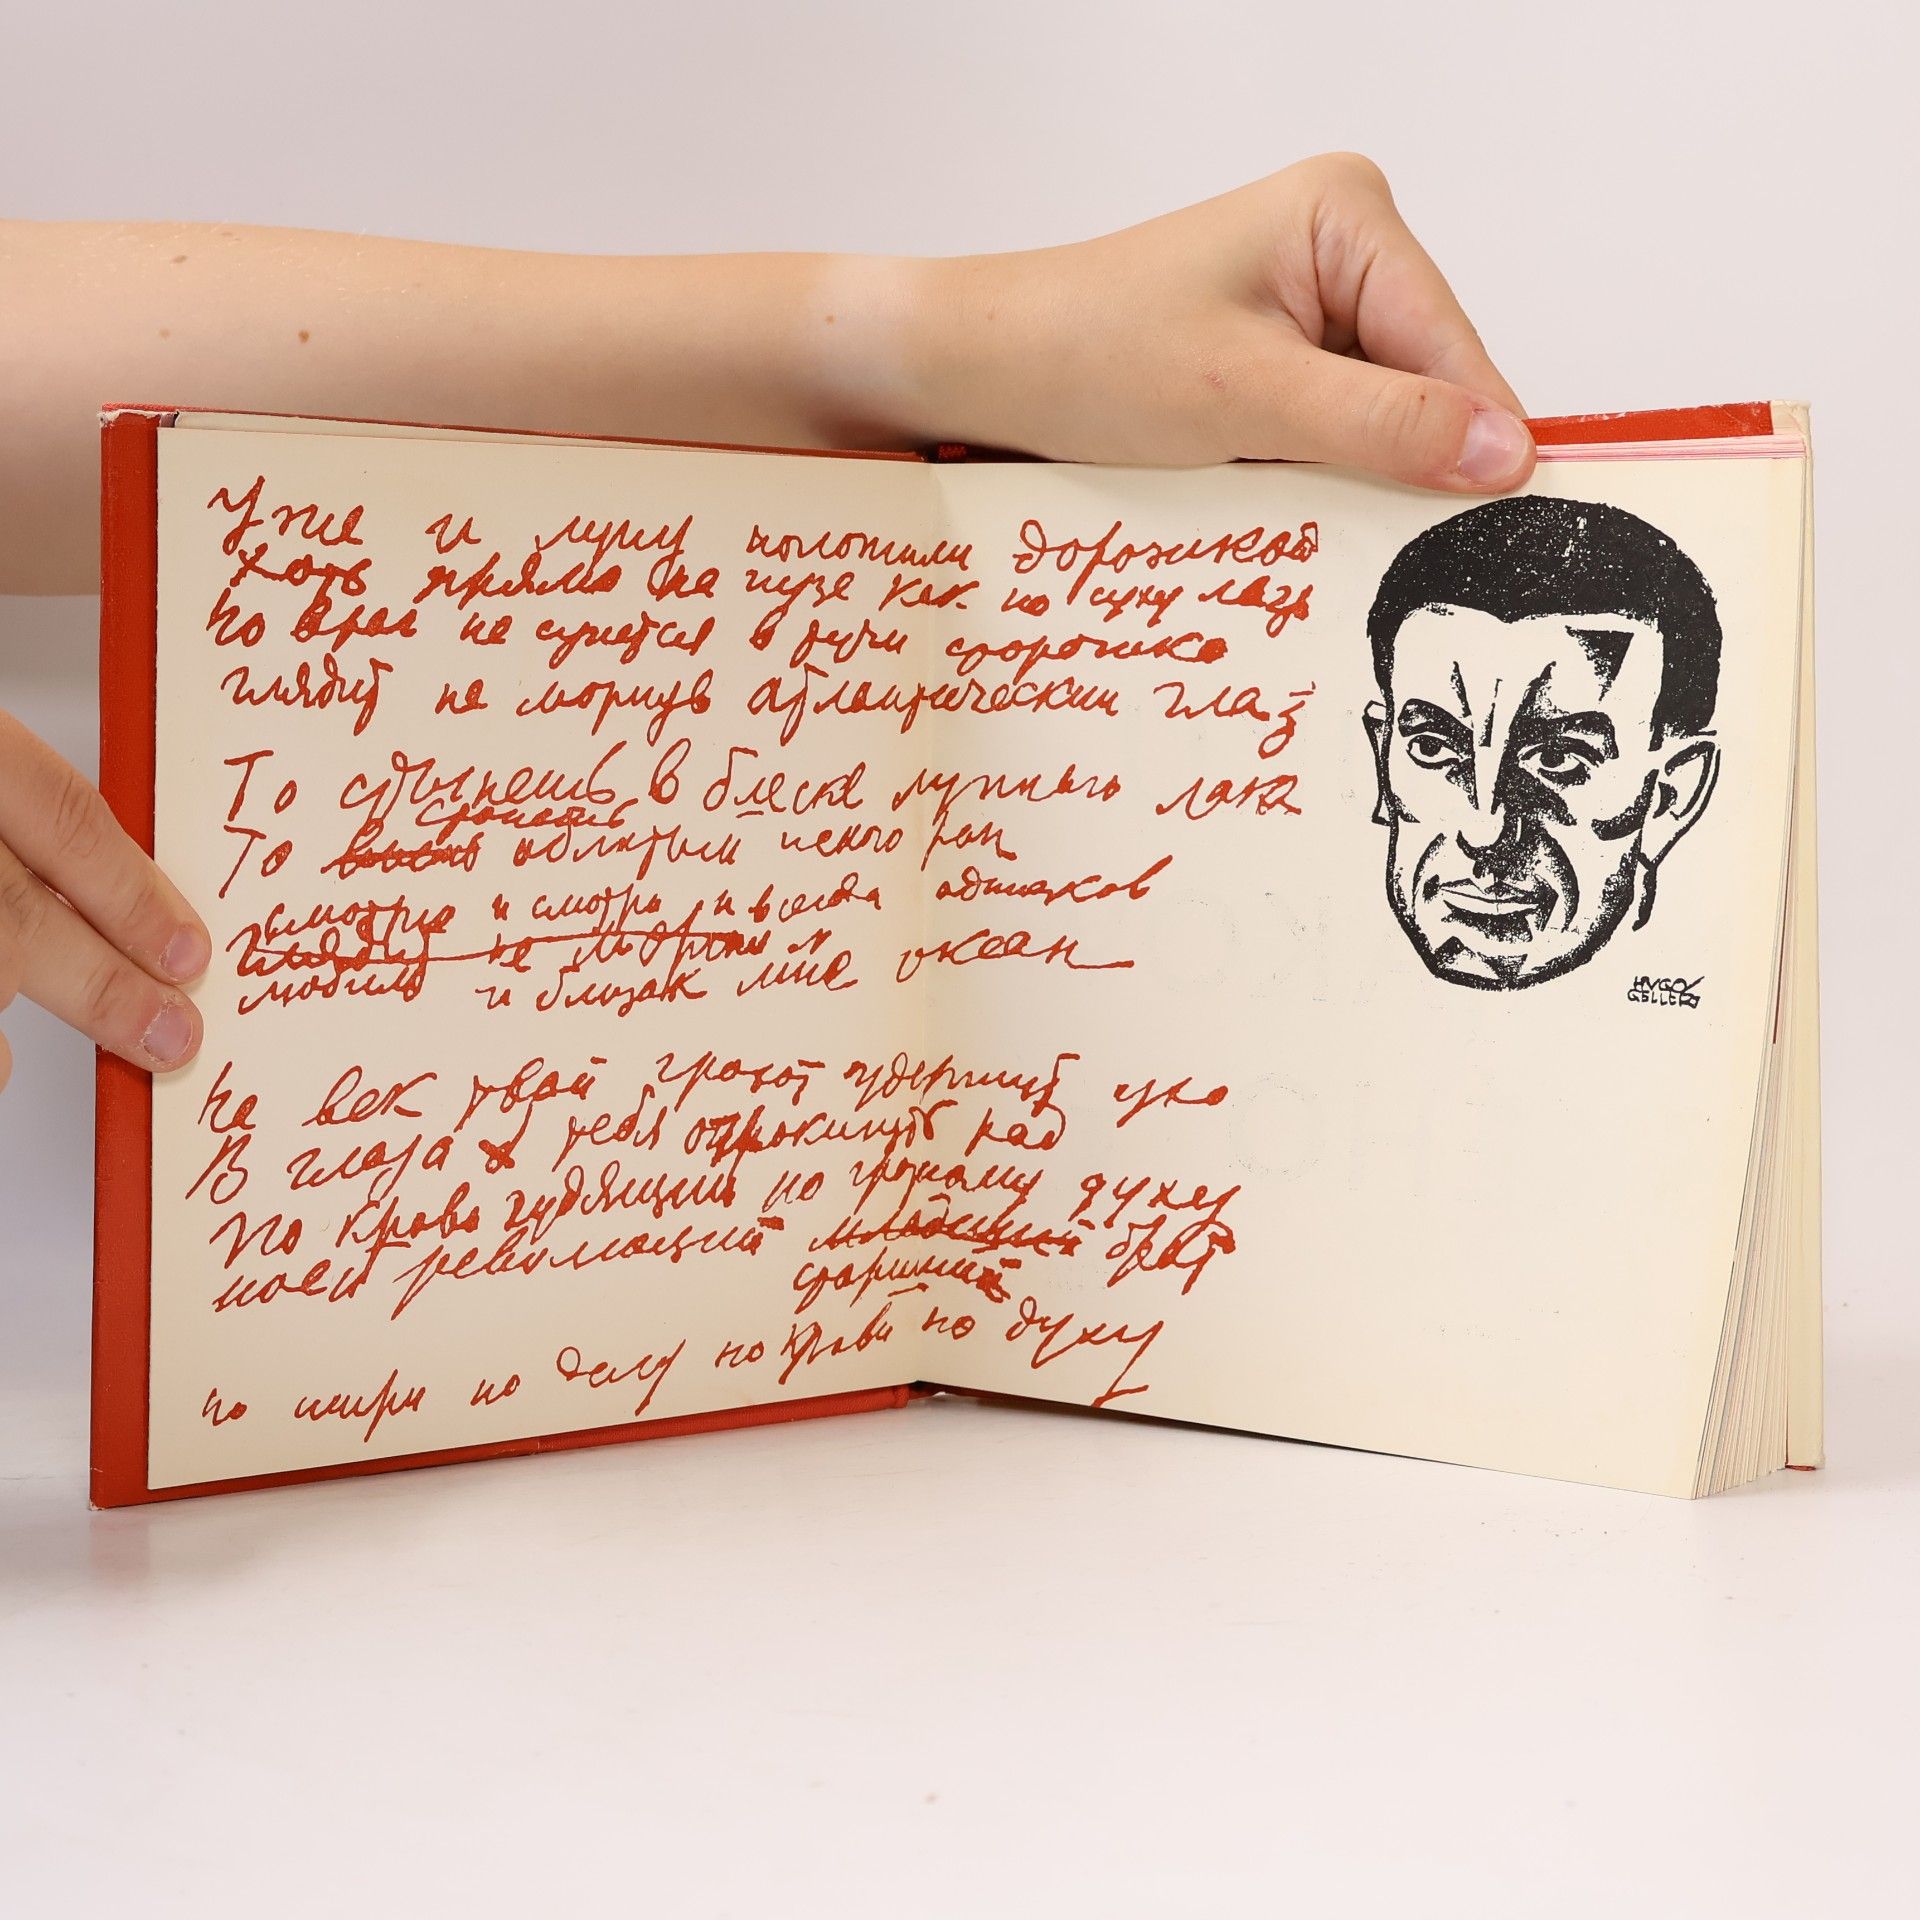 Уже и луну положили дорожкой
хоть прямо на пузе как по суху лазь
но враг не сунется в сторожко
глядит не моргнув атлантический глаз
То стынешь в блеске лунного лака
То стонешь облитый пеною ран
смотрю и смотрю и всегда одинаков
глядит не моргнув
любим и близок мне океан
на век твой грохот удержит ухо
В глаза тебя опрокинуть рад
По крови гудящий по духу
моей революции младший брат
старший
по шири по делу по крови по духу
HUGO
GELLERT